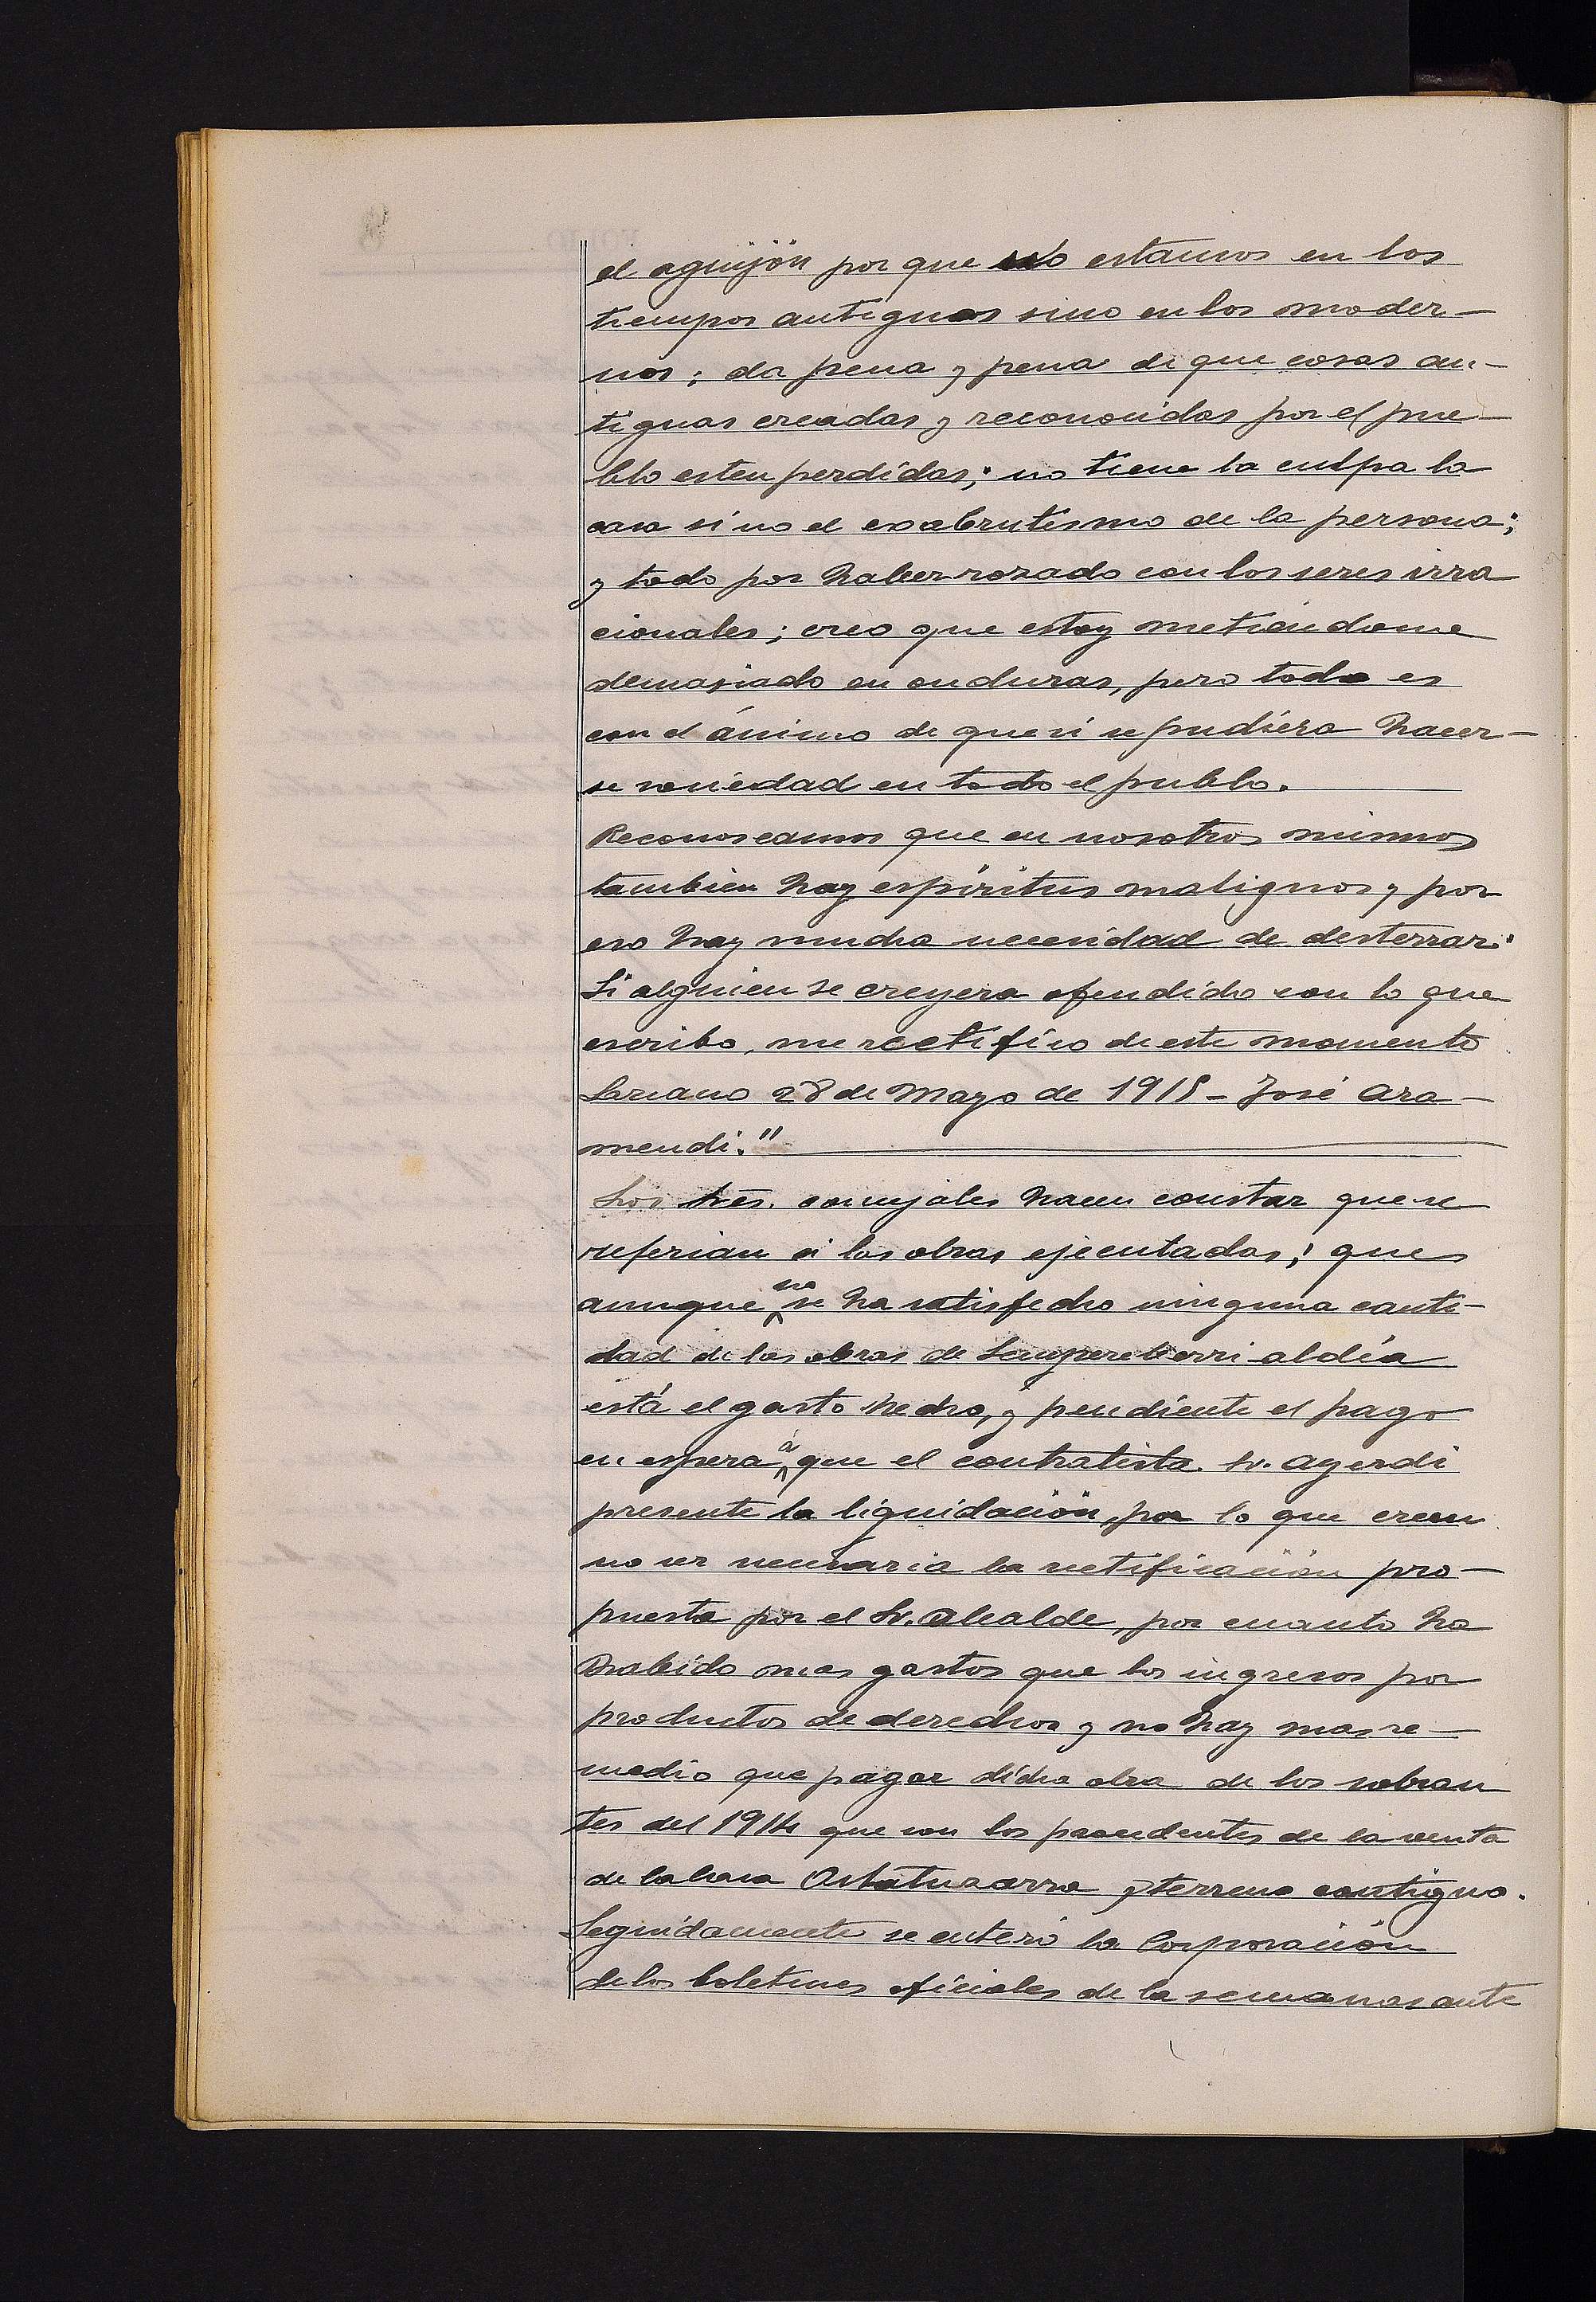 el aguijón por que no estamos en los
tiempos antiguos sino en los moder-
nos; da pena y pena de que cosas an-
tiguas creadas y reconocidas por el pue-
blo esten perdidas; no tiene la culpa la
cosa sino el exabrutismo de la persona;
y todo por haber rozado con los seres irra
cionales; creo que estoy metiendome
demasiado en onduras, pero todo es
con el ánimo de que si se pudiera hacer-
se sociedad en todo el pueblo.
Reconoscamos que en nosotros mismos
tambien hay espiritus malignos y por
eso hay mucha necesidad de desterrar.
Si alguien se creyera ofendido con lo que
escribo, me rectifico de este momento
Lezcano 28 de Mayo de 1915 - José Ara-
mendi."
Los Sres. concejales hacen constar que se
referian á las obras ejecutadas; que
aunque no se ha satisfecho ninguna canti-
dad de las obras de Semperetierri al día
está el gasto hecho, y pendiente el pago
en espera á que el contratista Sr. Ayerdi
presente la liquidación, por lo que creen
no ser necesaria la rectificación pro-
puesta por el Sr. Alcalde, por cuanto ha
habido mas gastos que los ingresos por
productos de derechos y no hay mas re-
medio que pagar dicha obra de los sobran
tes del 1914 que son los procedentes de la venta
de la casa Ostatuzarra y terreno contiguo.
Seguidamente se enteró la Corporación
de los boletines oficiales de la semanas ante